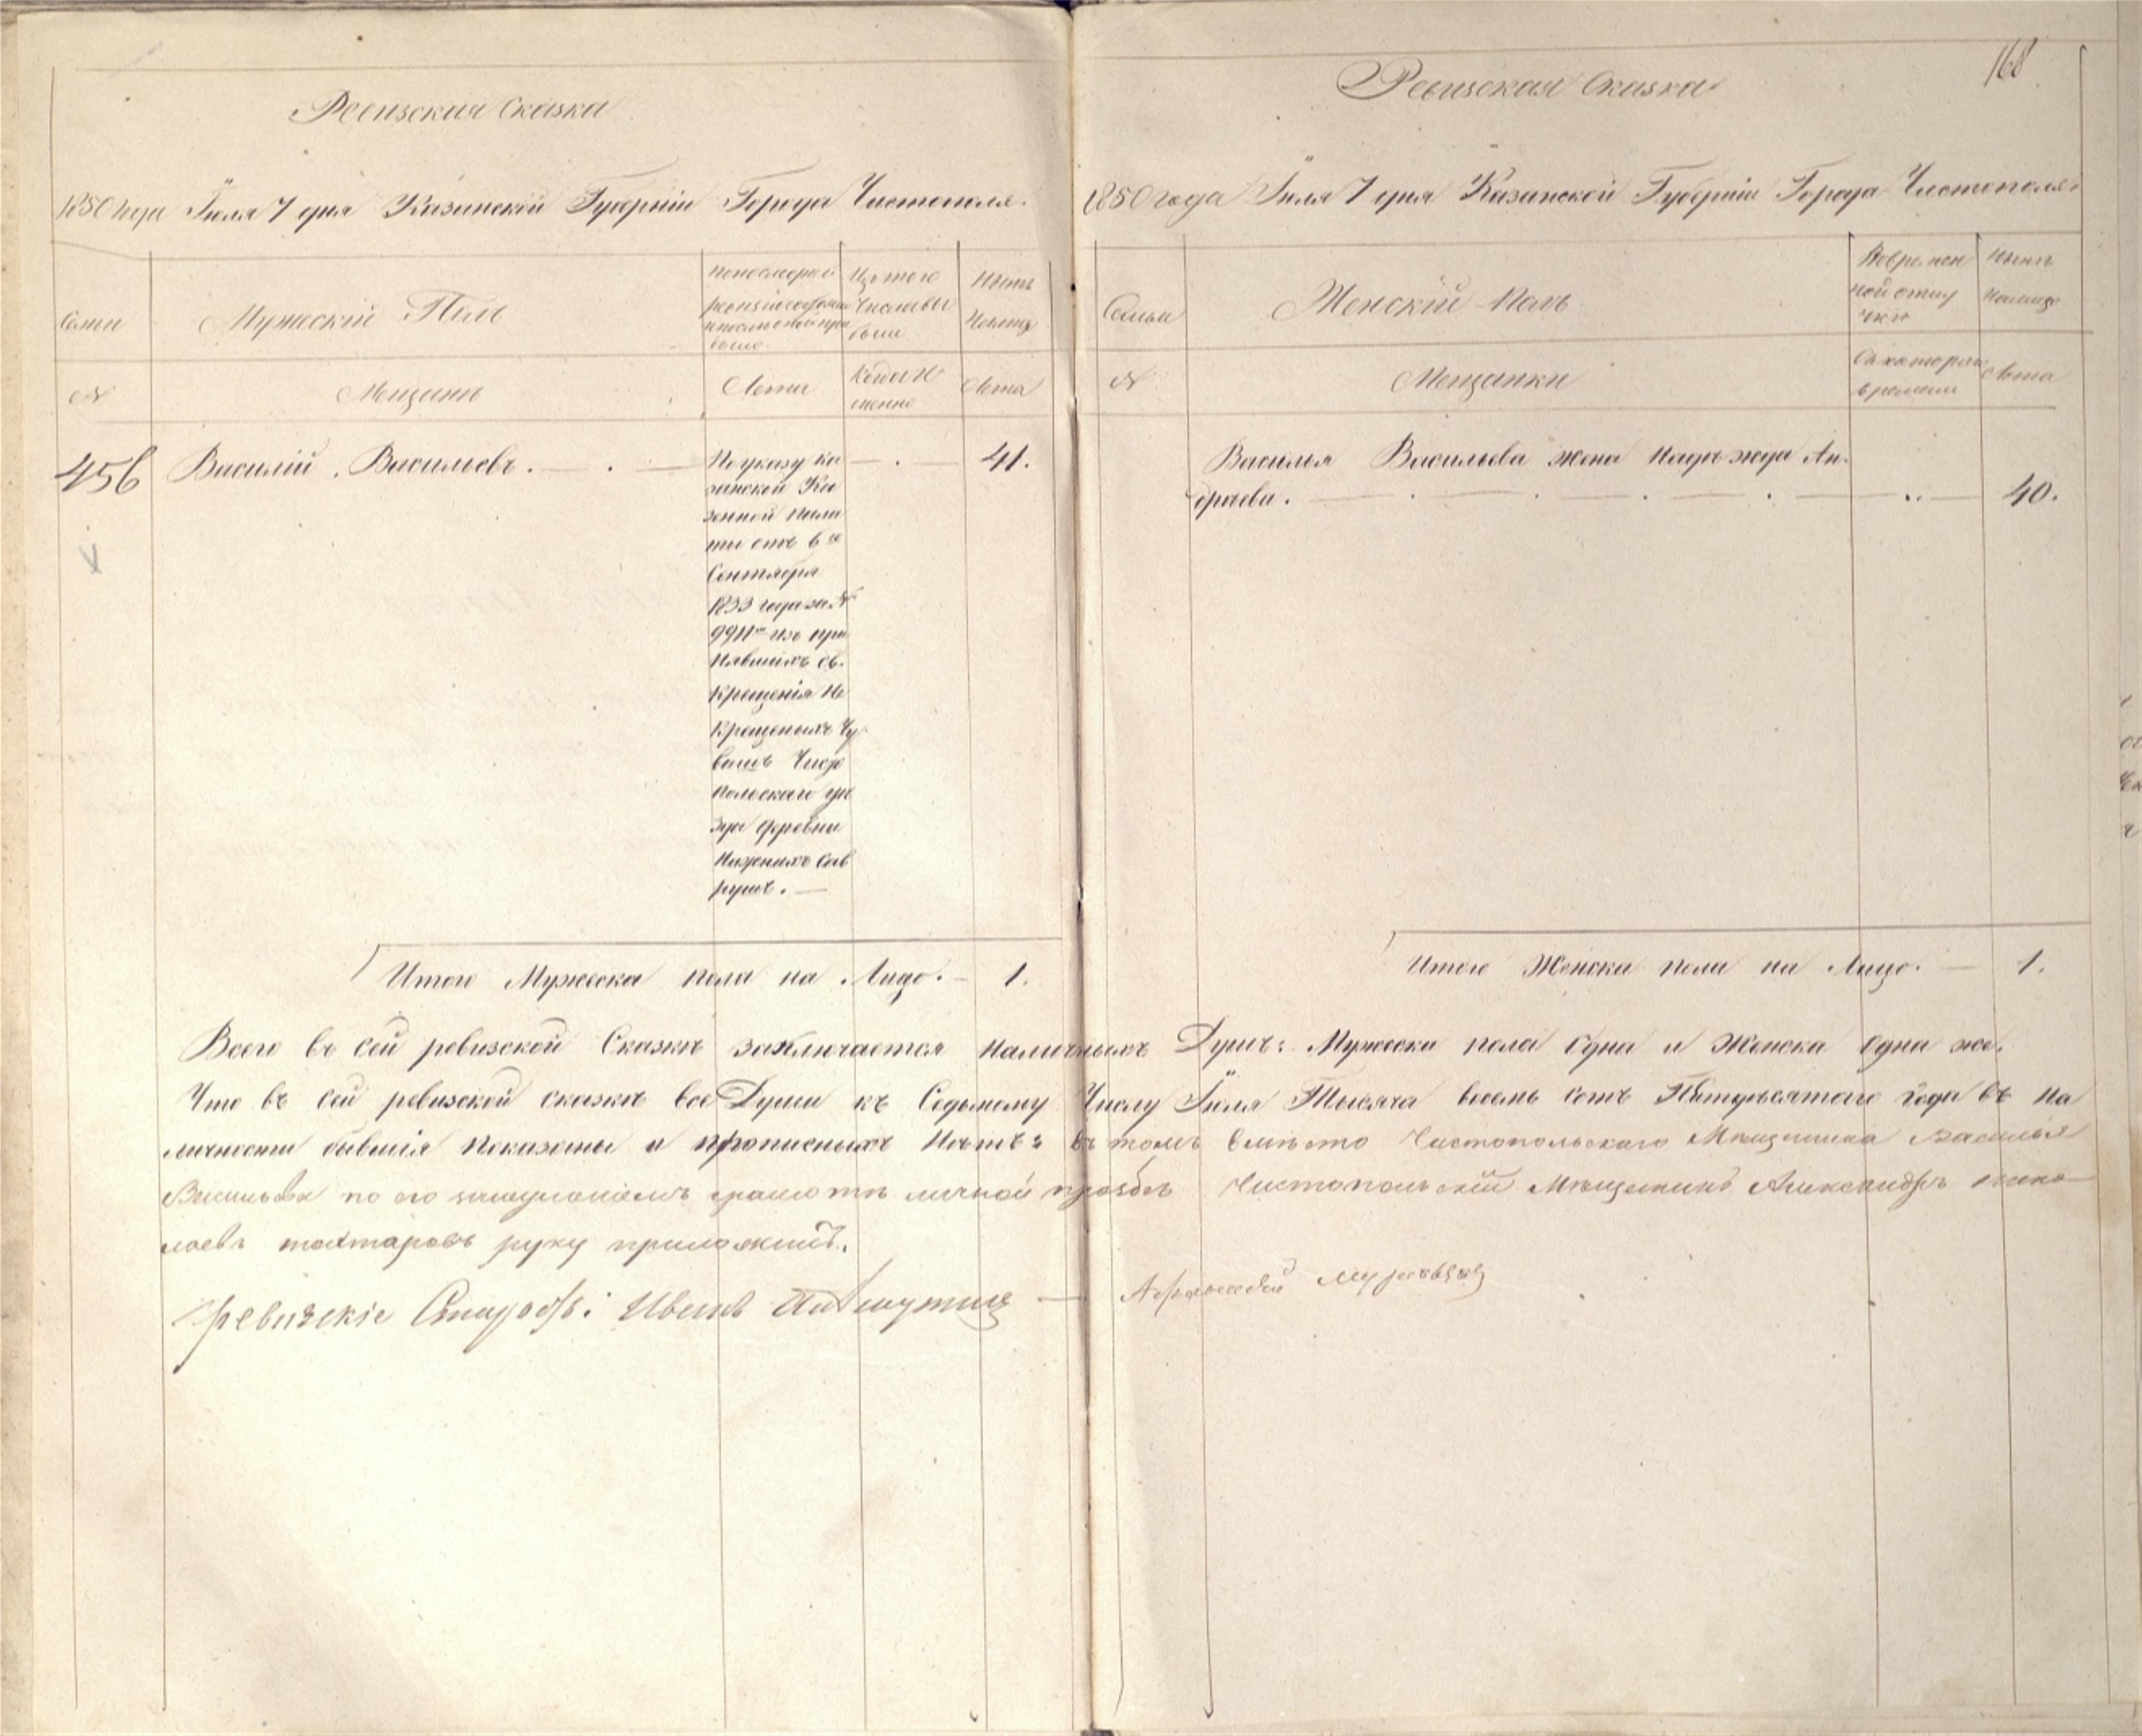 Ревизская Сказка
1850 года Іюля 7 дня Казанской Губерніи Города Чистополя.
Семьи
Мужескій Полъ
По последней
ревизіи состояло
и после оной при
было.
Изъ того
Числа вы
было
Ныне
На лицо
№
Мещане
Лета
Когда И
менно
Лета
456
Василій Васильевъ.
По указу ка
занской Ка
зенной пала
ты отъ 6го
Сентября
1833 года за №
9911м изъ при
нявшихъ св.
Крещенія Не
Крещеныхъ Чу
вашъ Чисто
польскаго уѣ
зда деревни
Нижнихъ Сав
рушъ.
41.
Итого Мужеска пола на Лицо. 1.
168
Ревизская Сказка
1850 года Іюля 7 дня Казанской Губерніи Города Чистополя.
Семьи
Женскій Полъ
Во времен
ной отлу
чкѣ
Ныне
На лицо
№
Мещанки
Съ котораго
времени
Лета
Василья Васильева жена Надежда Ан
дреева. 40.
Итого Женска пола на Лицо. 1.
Всего въ сей ревизской Сказкѣ заключается Наличныхъ Душъ: Мужеска пола Одна и Женска Одна же.
Что въ сей ревизской сказкѣ все Души къ Седьмому Числу Іюля Тысяча восемь сотъ Пятидесятаго Года въ На
личности бывшія показаны и прописныхъ Нѣтъ: въ томъ вместо Чистопольскаго Мещанина Василья
Васильева по его грамоте личной прозбѣ Чистопольскій Мещанинъ Александръ Нико
лаевъ тахтаровъ руку приложилъ.
ревизскіе Иванъ
Афанасей